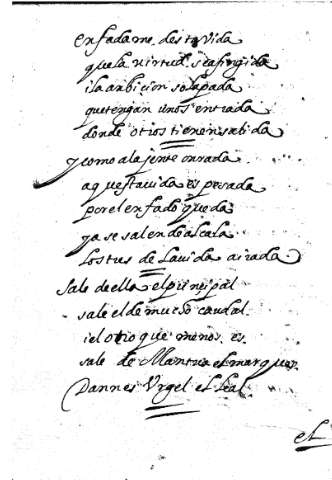 enfadame desta vida
que la virtud sea fingida
i la anbicion solapada
que tengan unos entrada
donde otros tienen sabida
y como a la jente onrada
aquesta vida es pesada
por el enfado que da
ya se salen de alcala
los tres de la vida airada
sale de ella el prinçipal
sale el de mucho caudal
i el otro que menos es
sale de Mantua el marques
Dannes Vrgel el leal
el